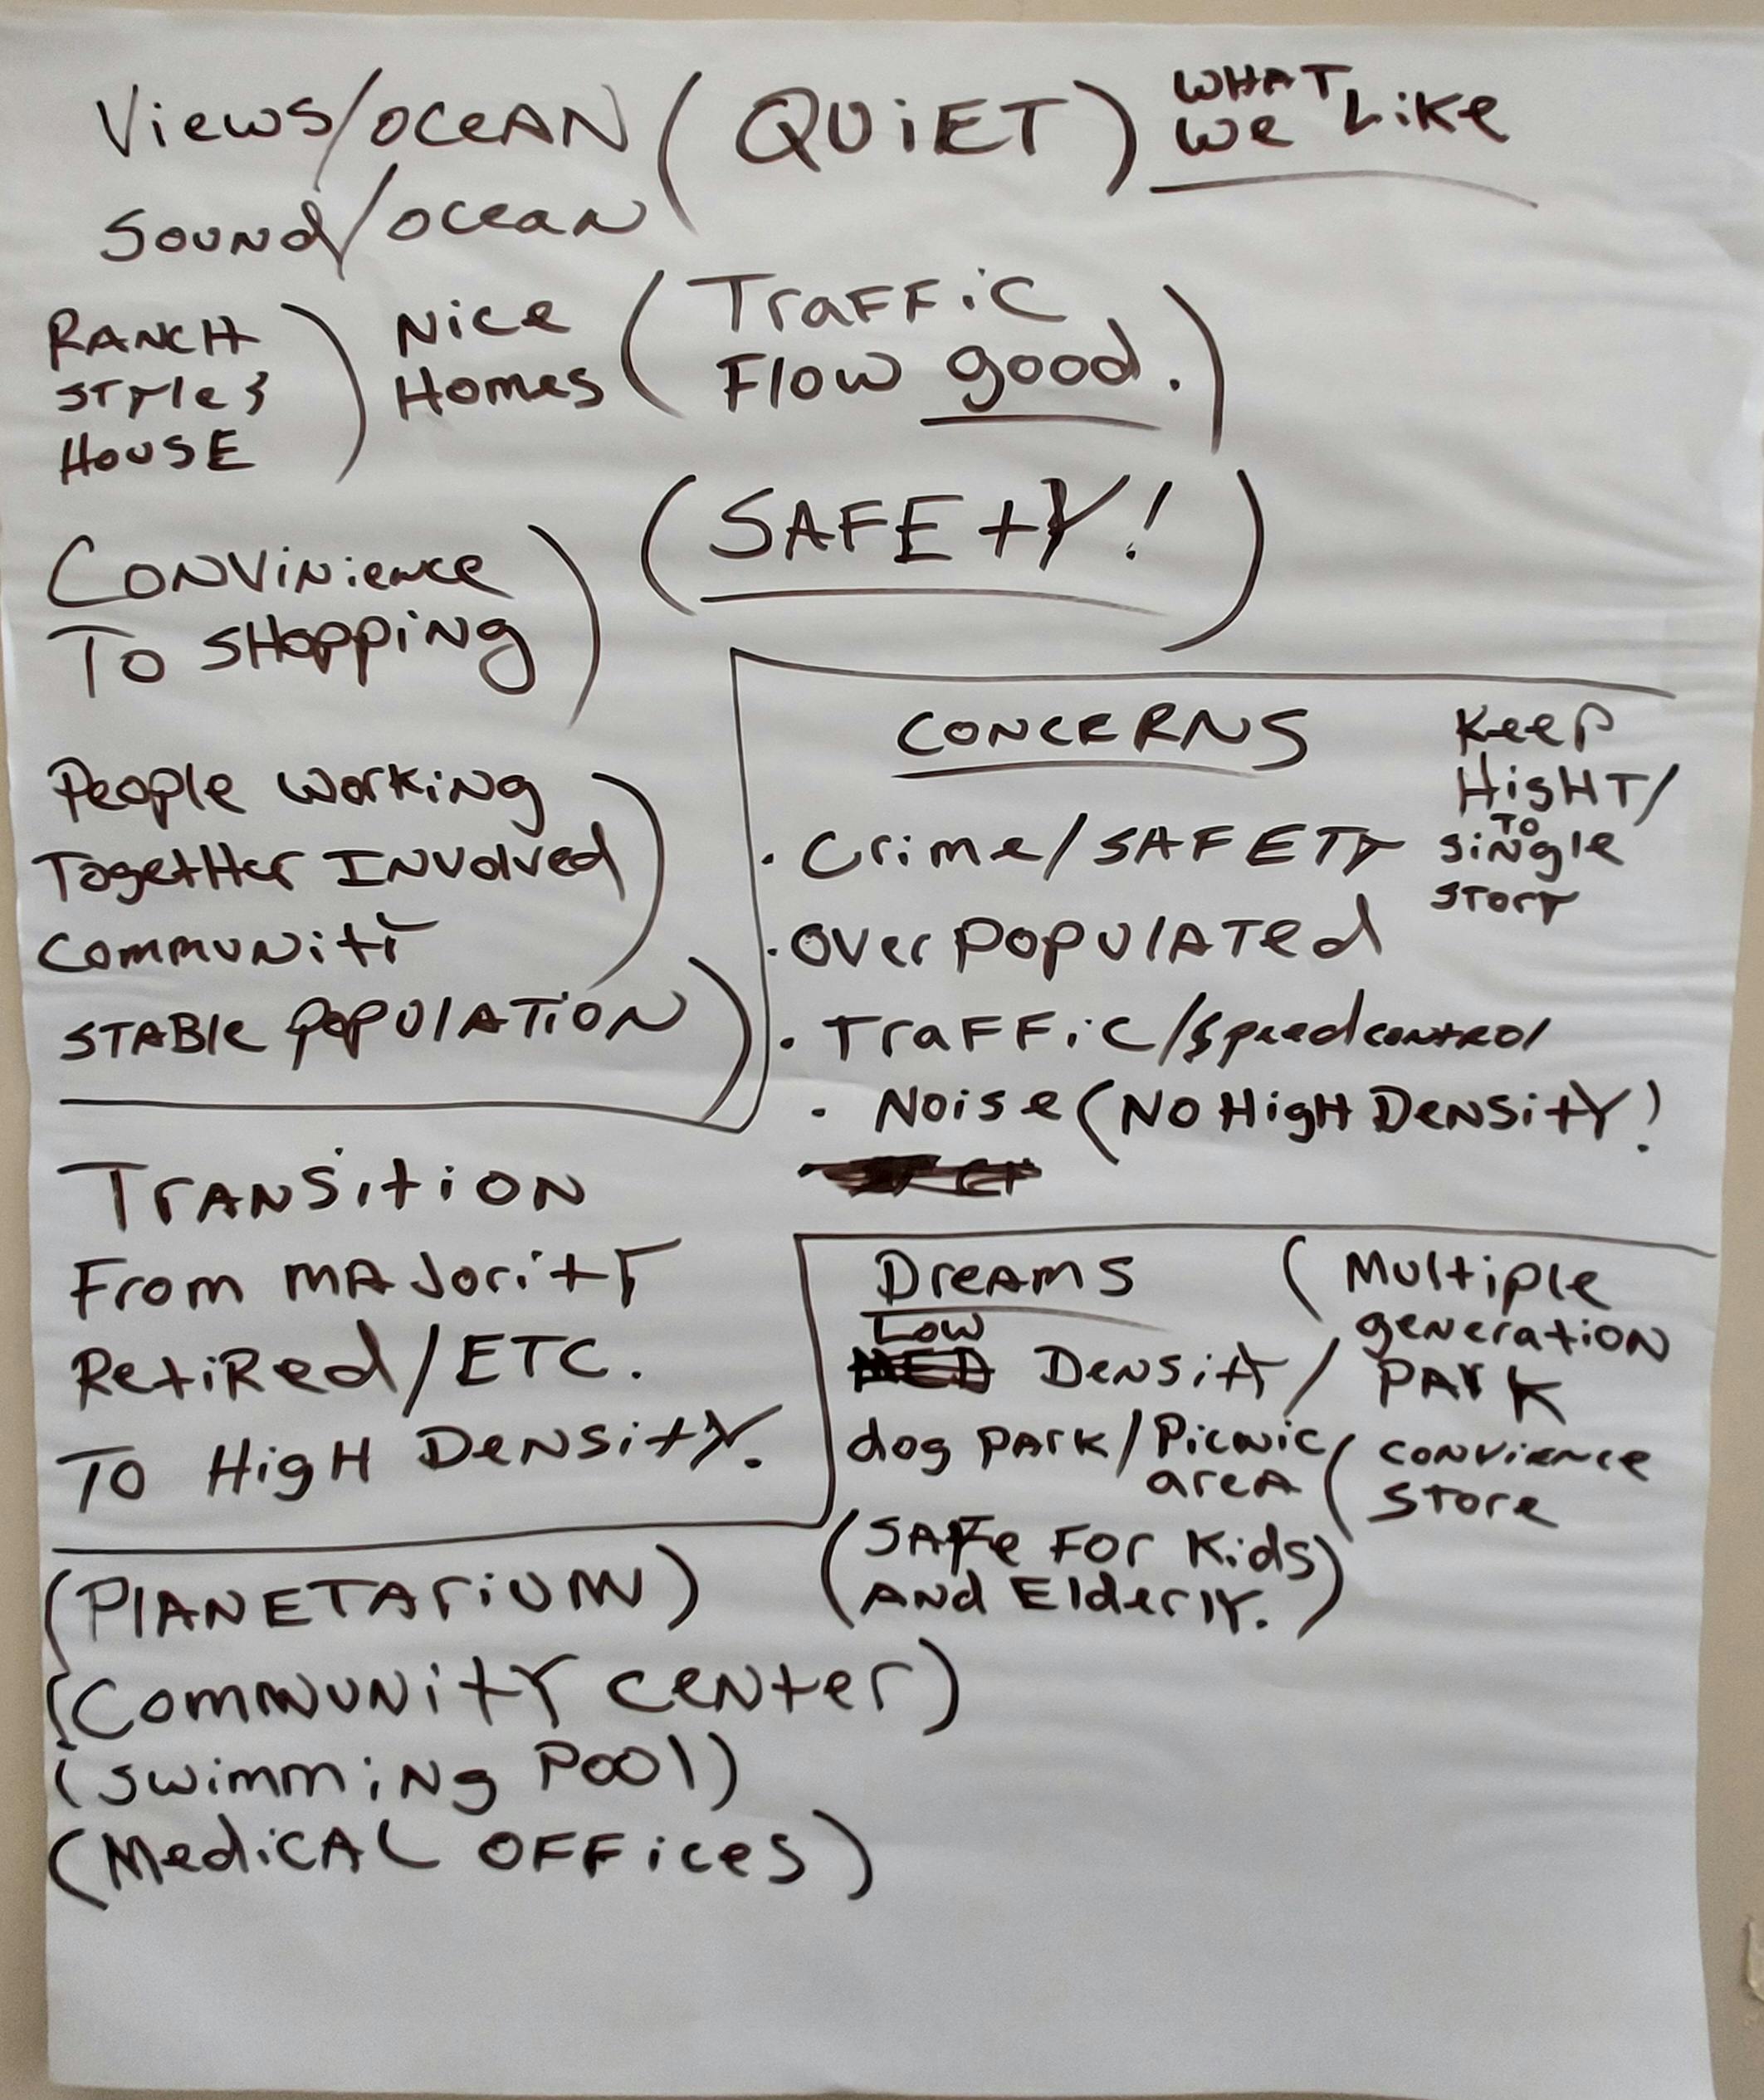 Views/OCEAN (QUiET) WHAT WE LiKe
SOUNd/OCEAN
RANCH STYLES HOUSE) Nice Homes (TraFFiC Flow good.)
(SAFEtY!)
CONViNience
To SHopping)
People working
TogetHer INVolved
CommuNitY)
STABle POPUlATiON)
CONCERNS
Keep HigHT/ TO SiNgle STorY
. Crime/SAFETY
. Over POPUlATed
. TraFFiC/Speed coNtROl
. Noise (NO HigH DeNSitY!
TrANSitiON
From mAJoritY
RetiRed/ETC.
To HigH DeNSitY.
DreAmS
Low
MED DeNSitY/
(Multiple geNeratioN PArk
dog PArk/Picnic areA
(coNVieNce Store
(SAFe For KidS
ANd ElderlY.)
(PlANETAriUM)
(CommUNitY CeNter)
(SwimmiNg Pool)
(MediCAL OFFiceS)